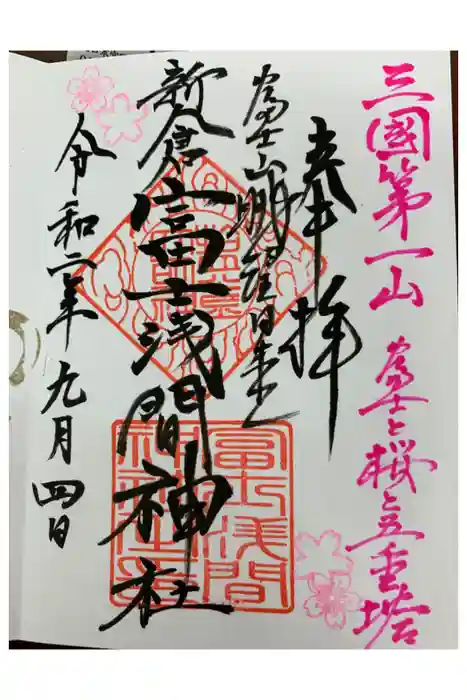 三國第一山 富士と桜と五重塔
奉拝
新倉富士浅間神社
令和二年九月四日
富士浅間
神社